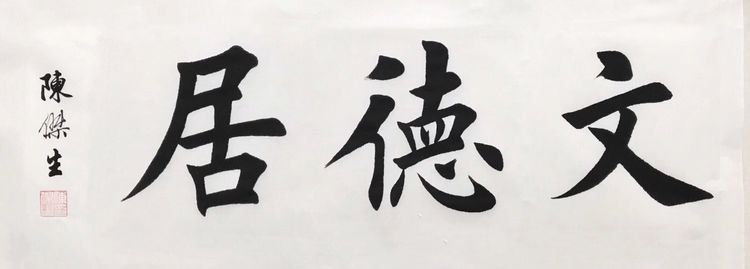 文德居
陳傑生